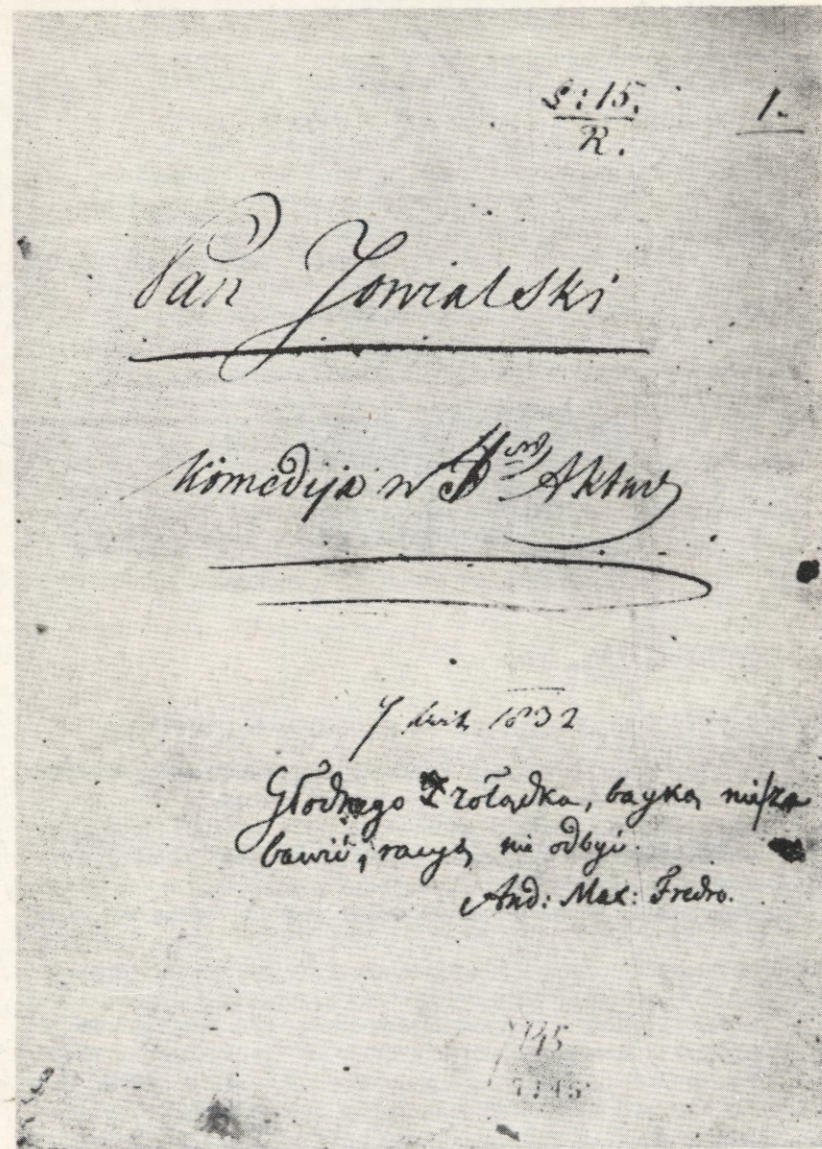 s: 15.    1.
R.
Pan Jowialski
Komedija w Aktach
1832
Głodnego żołądka, bayką nie za
bawić, racyą nie odbyć.
And: Max: Fredro.
7145
7145